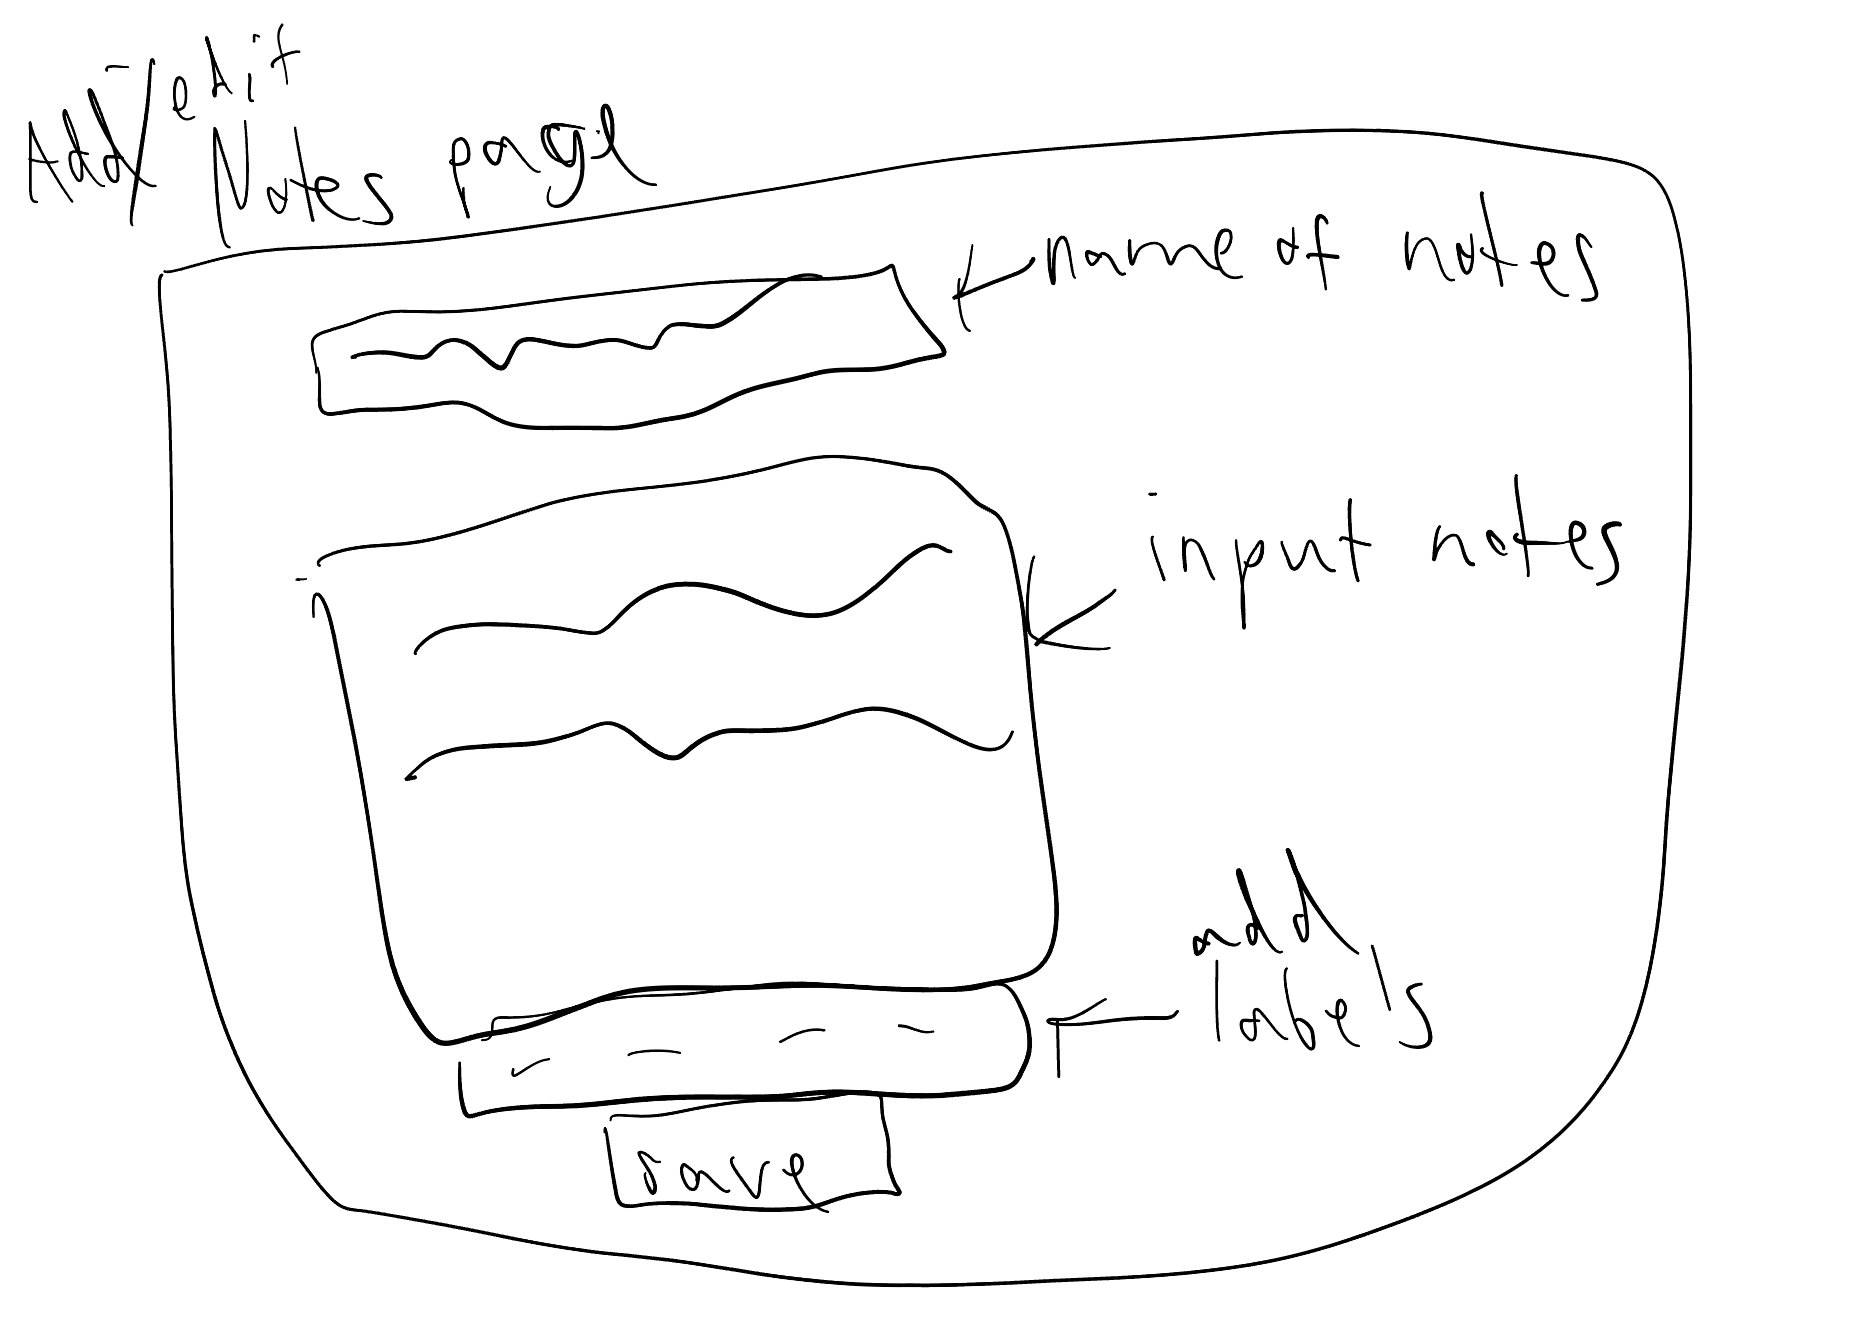 Add/edit
Notes page
name of notes
input notes
add
labels
save